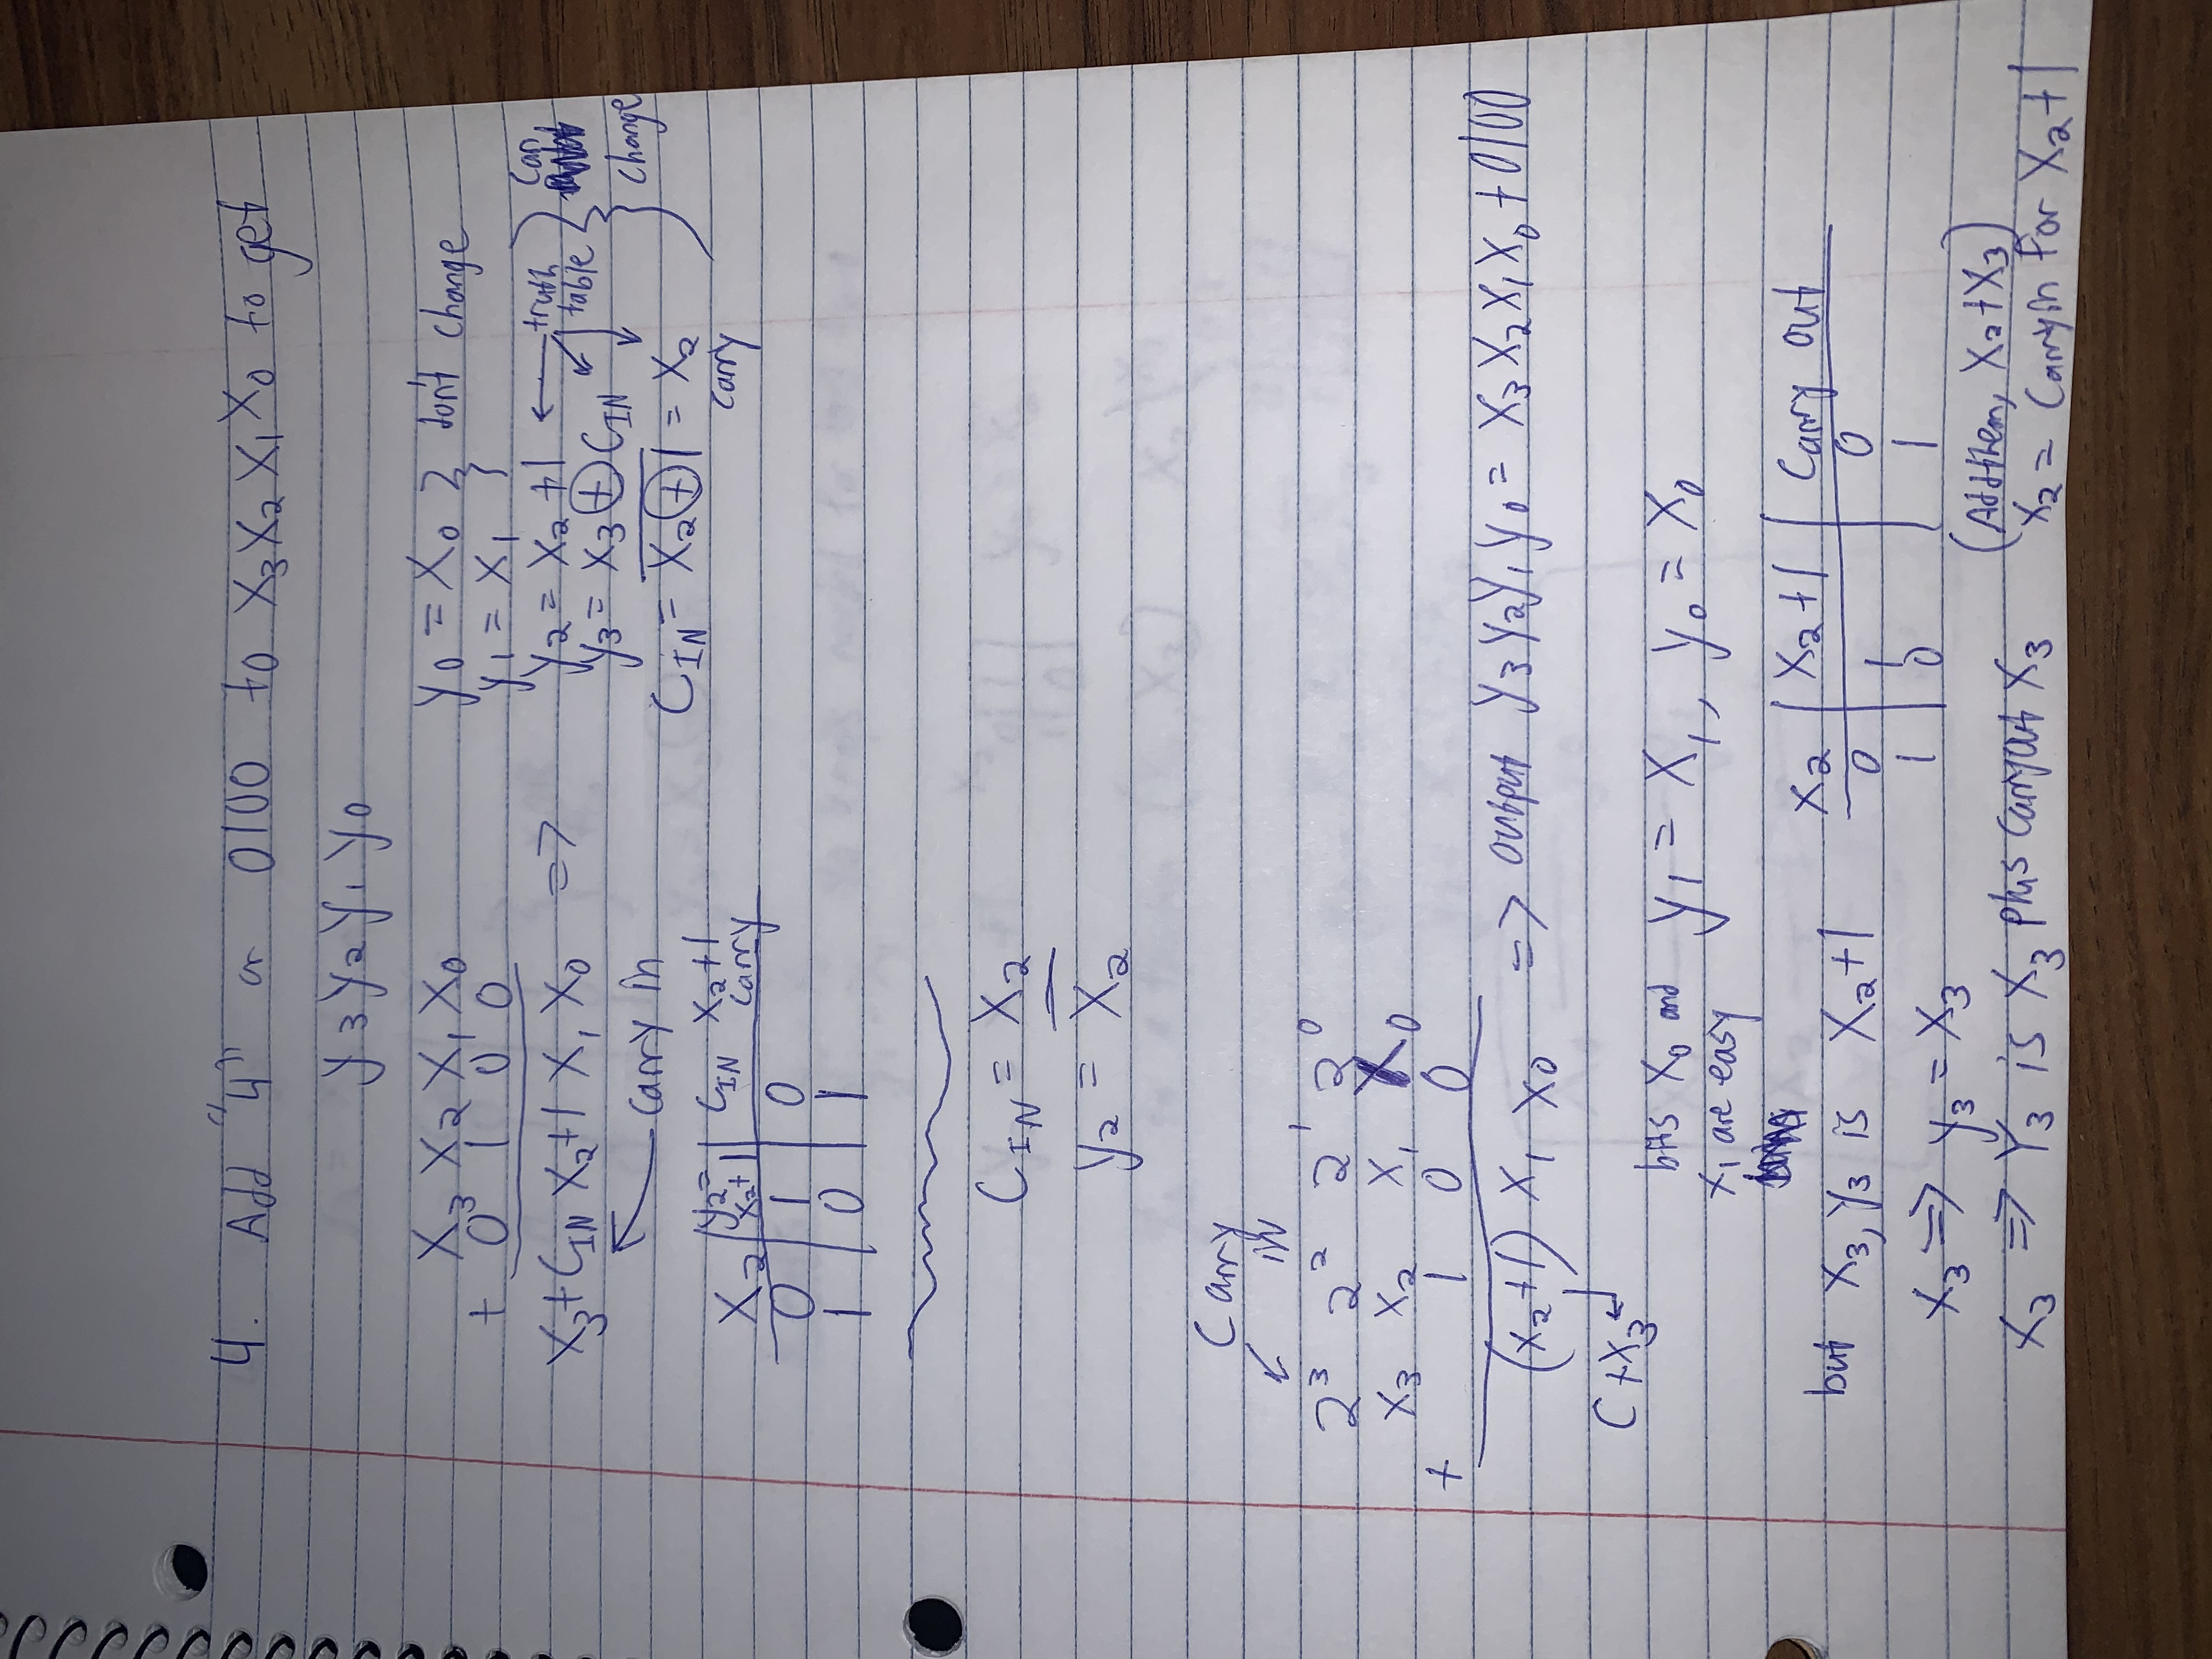 4. Add "4" or 0100 to X₃X₂X₁X₀ to get
y₃y₂y₁y₀
X₃ X₂ X₁ X₀
+ 0 1 0 0
X₃+C_IN X₂+1 X₁ X₀ =>
carry in
y₀ = X₀ } don't change
y₁ = X₁
y₂ = X₂ +1 ← truth table } can change
y₃ = X₃ ⊕ C_IN
C_IN = \overline{X₂ ⊕ 1} = X₂
carry
X₂ | y₂= X₂+1 | C_IN X₂+1 carry
0 | 1 | 0
1 | 0 | 1
C_IN = X₂
y₂ = \overline{X₂}
Carry in
2³ 2² 2¹ 2⁰
X₃ X₂ X₁ X₀
+ 1 0 0
(X₂+1) X₁ X₀ => output y₃y₂y₁y₀ = X₃X₂X₁X₀+0100
C+X₃
bits X₀ and y₁ = X₁, y₀ = X₀
X₁ are easy
but X₃,y₃ is X₂+1
X₂ | X₂+1 | Carry out
0 | 1 | 0
1 | 0 | 1
X₃ => y₃ = X₃
X₃ => Y₃ is X₃ plus carryout X₃
(Add them, X₂+X₃)
X₂ = Carryin for X₂+1